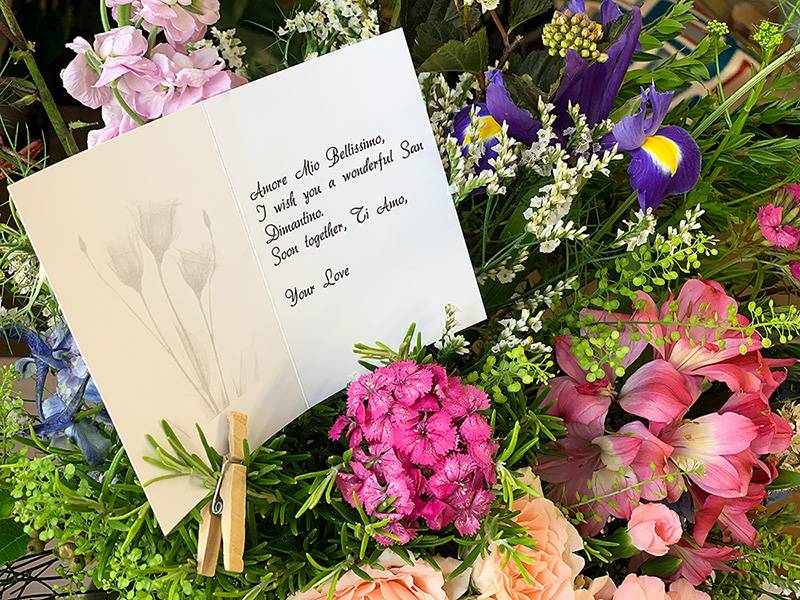 Amore Mio Bellissimo,
I wish you a wonderful San
Dimantino.
Soon together, Ti Amo,
Your Love